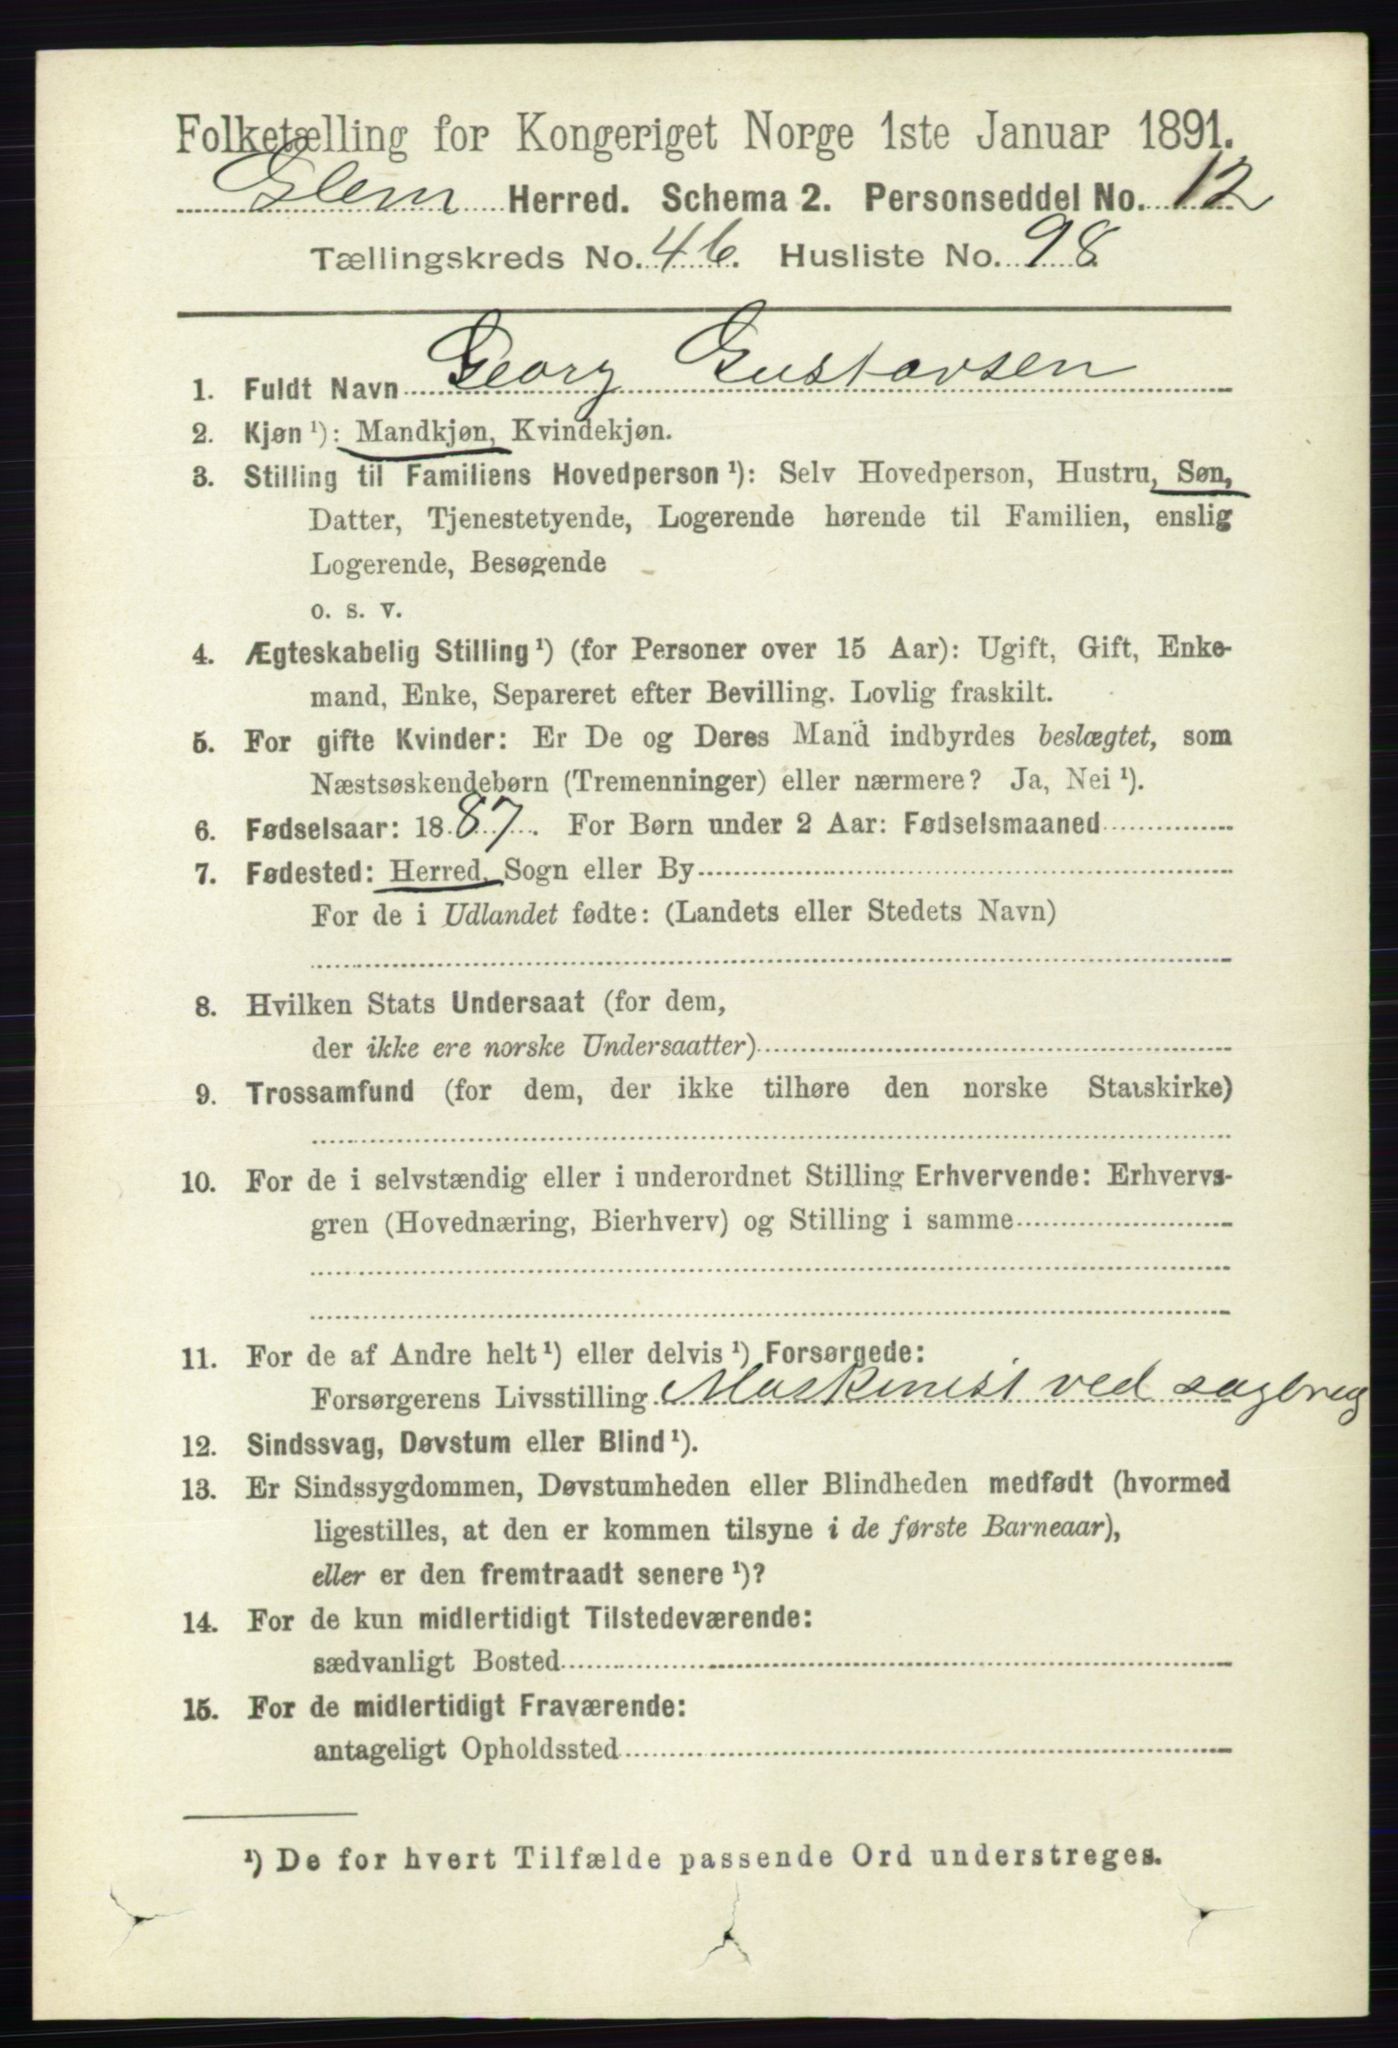 Folketælling for Kongeriget Norge 1ste Januar 1891.
Glem Herred. Schema 2. Personseddel No. 12
Tællingskreds No. 46. Husliste No. 98
1. Fuldt Navn Georg Gustavsen
2. Kjøn ¹): Mandkjøn, Kvindekjøn.
3. Stilling til Familiens Hovedperson ¹): Selv Hovedperson, Hustru, Søn,
Datter, Tjenestetyende, Logerende hørende til Familien, enslig
Logerende, Besøgende
o. s. v.
4. Ægteskabelig Stilling ¹) (for Personer over 15 Aar): Ugift, Gift, Enke-
mand, Enke, Separeret efter Bevilling. Lovlig fraskilt.
5. For gifte Kvinder: Er De og Deres Mand indbyrdes beslægtet, som
Næstsøskendebørn (Tremenninger) eller nærmere? Ja, Nei ¹).
6. Fødselsaar: 1887. For Børn under 2 Aar: Fødselsmaaned
7. Fødested: Herred, Sogn eller By
For de i Udlandet fødte: (Landets eller Stedets Navn)
8. Hvilken Stats Undersaat (for dem,
der ikke ere norske Undersaatter)
9. Trossamfund (for dem, der ikke tilhøre den norske Statskirke)
10. For de i selvstændig eller i underordnet Stilling Erhvervende: Erhvervs-
gren (Hovednæring, Bierhverv) og Stilling i samme
11. For de af Andre helt ¹) eller delvis ¹) Forsørgede:
Forsørgerens Livsstilling Maskinist ved sagbrug
12. Sindssvag, Døvstum eller Blind ¹).
13. Er Sindssygdommen, Døvstumheden eller Blindheden medfødt (hvormed
ligestilles, at den er kommen tilsyne i de første Barneaar),
eller er den fremtraadt senere ¹)?
14. For de kun midlertidigt Tilstedeværende:
sædvanligt Bosted
15. For de midlertidigt Fraværende:
antageligt Opholdssted
¹) De for hvert Tilfælde passende Ord understreges.